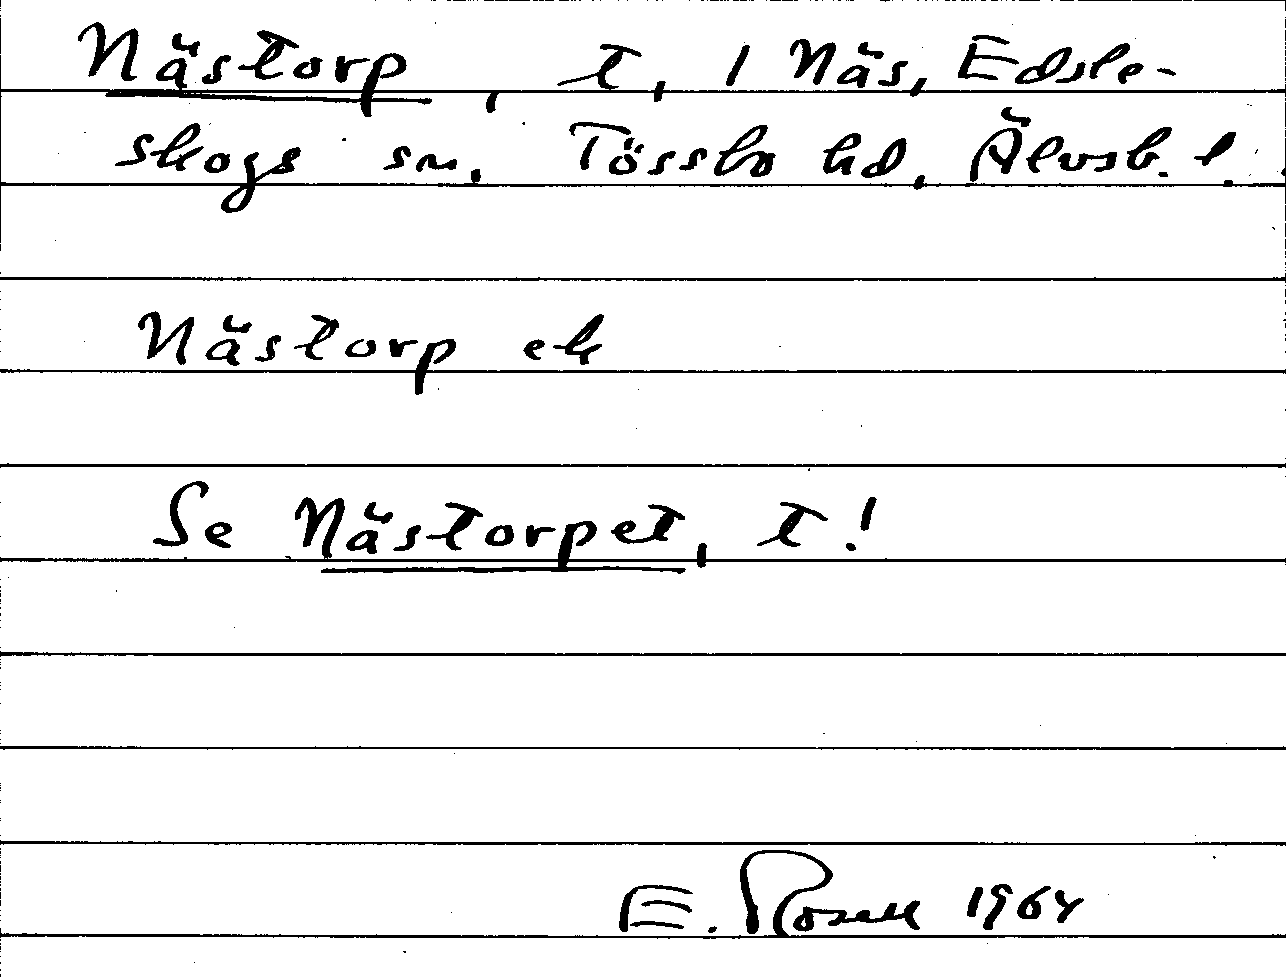 Nästorp, t, 1 Näs, Edsle-
skogs sn. Tössbo hd, Älvsb. l.
Nästorp ek
Se Nästorpet, t!
E. Rosell 1964